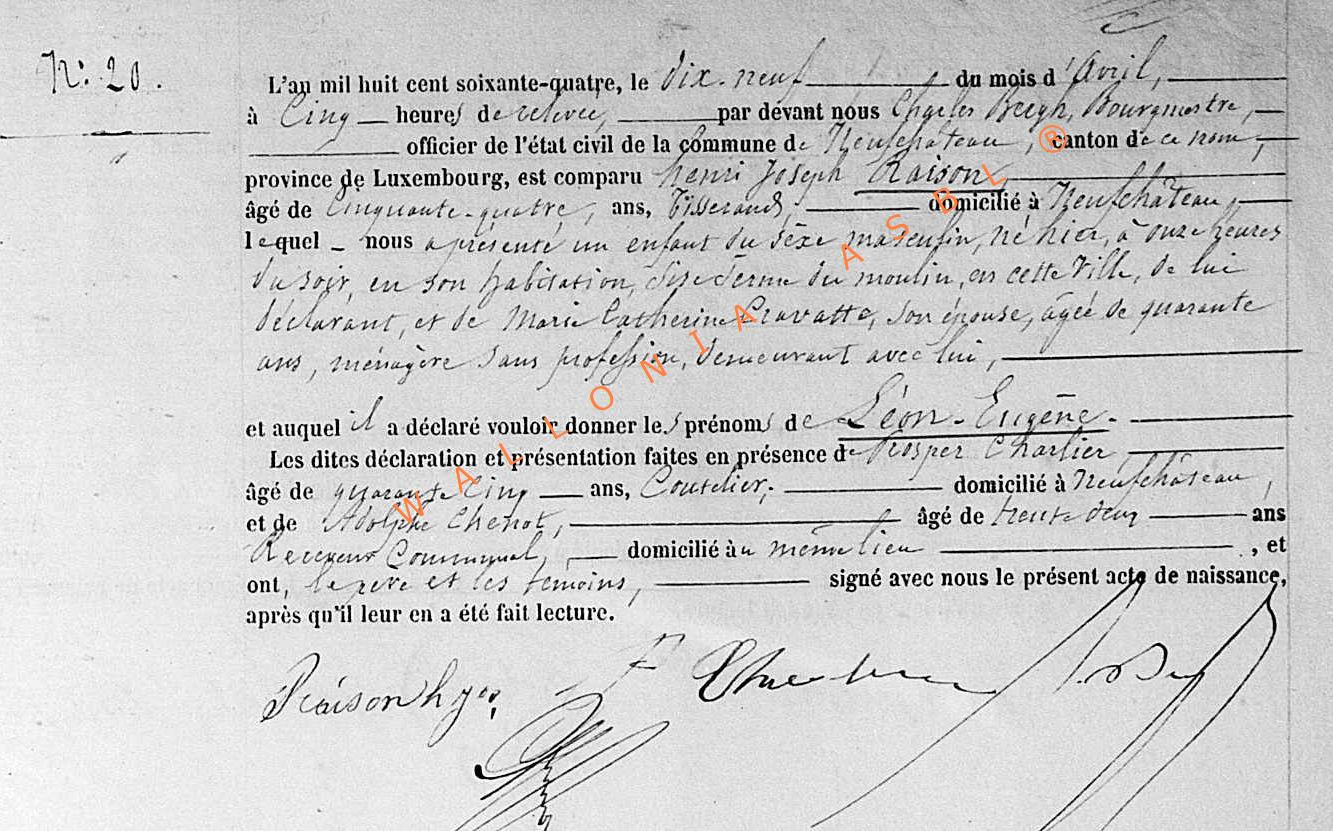 N.º 20.
L'an mil huit cent soixante-quatre, le dix-neuf du mois d'avril,
à Cinq heures de relevée, par devant nous Charles Bergh, Bourgmestre,
officier de l'état civil de la commune de Neufchâteau, canton de ce nom,
province de Luxembourg, est comparu henri Joseph Raison,
âgé de Cinquante-quatre, ans, Tisserand, domicilié à Neufchâteau,
lequel nous a présenté un enfant du sèxe masculin, né hier, à onze heures
du soir, en son habitation, sise derrière du moulin, en cette Ville, de lui
déclarant, et de Marie Catherine Cravatte, son épouse, agée de quarante
ans, ménagère sans profession, demeurant avec lui,
et auquel il a déclaré vouloir donner les prénoms de Léon-Eugène.
Les dites déclaration et présentation faites en présence de Prosper Charlier
âgé de quarante Cinq ans, Coutelier, domicilié à Neufchâteau,
et de Adolphe Chenot, âgé de trente deux ans
Receveur Communal, domicilié au même lieu , et
ont, le père et les témoins, signé avec nous le présent acte de naissance,
après qu'il leur en a été fait lecture.
Raison h j
WALLONIA ASBL ®